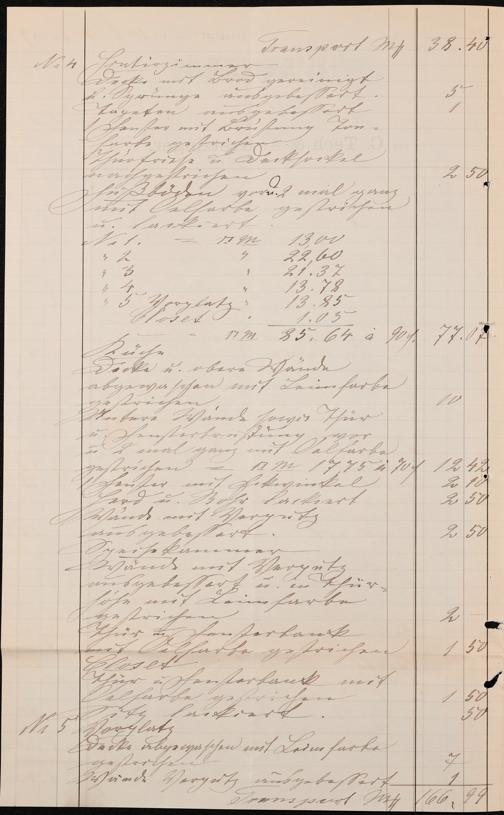 Transport M 38.40
No 4 Frontirzimmer
Decke mit Brod gereinigt
u. Sprünge ausgebessert. 5
Tapeten ausgebessert 1
Fenster mit Brüstung Ton-
farbe gestrichen
Thürfritze u Decksockel
nachgestrichen 2 50
Fußböden vor u. 2 mal ganz
mit Oelfarbe gestrichen
u. lackiert.
No 1. = □ m 13,00
" 2 " 22,60
" 3 " 21.37
" 4 " 13.78
" 5 Vorplatz " 13.85
Closet " 1.05
□ m 85.64 à 90 ₰ 77.07
Küche
Decke u. obere Wände
abgewaschen mit Leimfarbe
gestrichen 10
Untere Wände sowie Thür
u. Fensterbrüstung vor
u 2 mal ganz mit Oelfarbe
gestrichen = □ m 17,75 à 70 ₰ 12 42
Fenster mit 2 10
Herd u. Rohr lackiert 2 50
Wände mit Verputz
ausgebessert. 2 50
Speisekammer
Wände mit Verputz
ausgebessert u. in Thür-
höhe mit Leimfarbe
gestrichen 2 –
Thür u Fensterbank
mit Oelfarbe gestrichen 1 50
Closet
Thür u Fensterbank mit
Oelfarbe gestrichen 1 50
Sitz lackiert. 50
No 5 Vorplatz
Decke abgewaschen mit Leimfarbe
gestrichen 7
Wände Verputz ausgebessert 1
Transport M 166.99